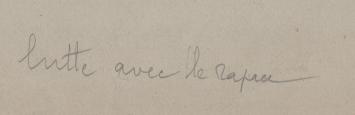 lutte avec le rapace